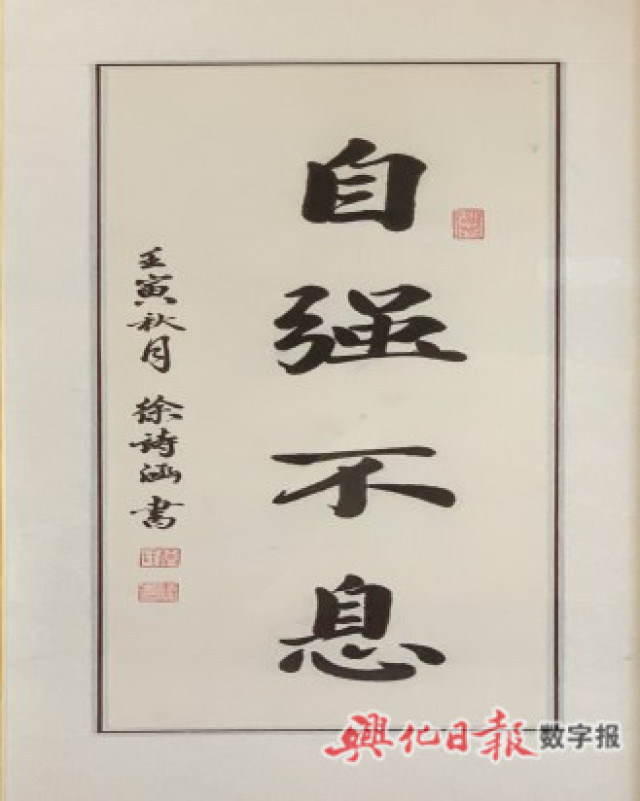 自强不息
壬寅秋月 徐诗涵書
興化日報 数字报